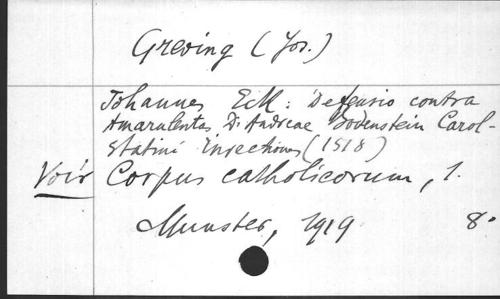 Greving (Jos.)
Johannes Eck: Defensio contra
Amarulentas D. Andreae Bodenstein Carol-
statini Invectiones (1518)
Voir Corpus catholicorum, 1.
Munster, 1919 8°